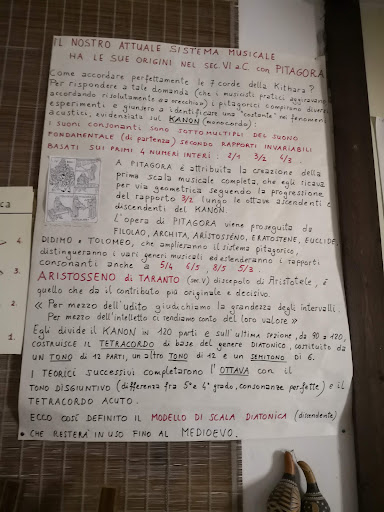 IL NOSTRO ATTUALE SISTEMA MUSICALE
HA LE SUE ORIGINI NEL SEC. VI a.C. con PITAGORA
Come accordare perfettamente le 7 corde della Kithara?
Per rispondere a tale domanda (che i musicisti pratici aggiravano
accordando risolutamente ad orecchio) i pitagorici compirono diversi
esperimenti e giunsero a identificare una "costante" nei fenomeni
acustici, evidenziata sul KANON (monocordo):
I suoni consonanti sono SOTTOMULTIPLI DEL SUONO
FONDAMENTALE (di partenza) SECONDO RAPPORTI INVARIABILI
BASATI SUI PRIMI 4 NUMERI INTERI: 2/1 3/2 4/3
A PITAGORA è attribuita la creazione della
prima scala musicale completa, che egli ricava
per via geometrica seguendo la progressione
del rapporto 3/2 lungo le ottave ascendenti e
discendenti del KANON.
L'opera di PITAGORA viene proseguita da
FILOLAO, ARCHITA, ARISTOSSENO, ERATOSTENE, EUCLIDE,
DIDIMO e TOLOMEO, che amplieranno il sistema pitagorico,
distingueranno i vari generi musicali ed estenderanno i rapporti
consonanti anche a 5/4 6/5, 8/5 5/3.
ARISTOSSENO di TARANTO (sec. IV) discepolo di Aristotele, è
quello che dà il contributo più originale e decisivo.
« Per mezzo dell'udito giudichiamo la grandezza degli intervalli
Per mezzo dell'intelletto ci rendiamo conto del loro valore »
Egli divide il KANON in 120 parti e sull'ultima sezione, da 90 a 120,
COSTRUISCE IL TETRACORDO di base del genere DIATONICO, costituito da
UN TONO DI 12 PARTI, un altro TONO di 12 e UN SEMITONO DI 6.
I TEORICI successivi completarono l'OTTAVA con il
TONO DISGIUNTIVO (differenza fra 5° e 4° grado, consonanze perfette) e il
TETRACORDO ACUTO.
ECCO così DEFINITO IL MODELLO DI SCALA DIATONICA (discendente)
CHE RESTERÀ IN USO FINO AL MEDIOEVO.
ca
4
2
1